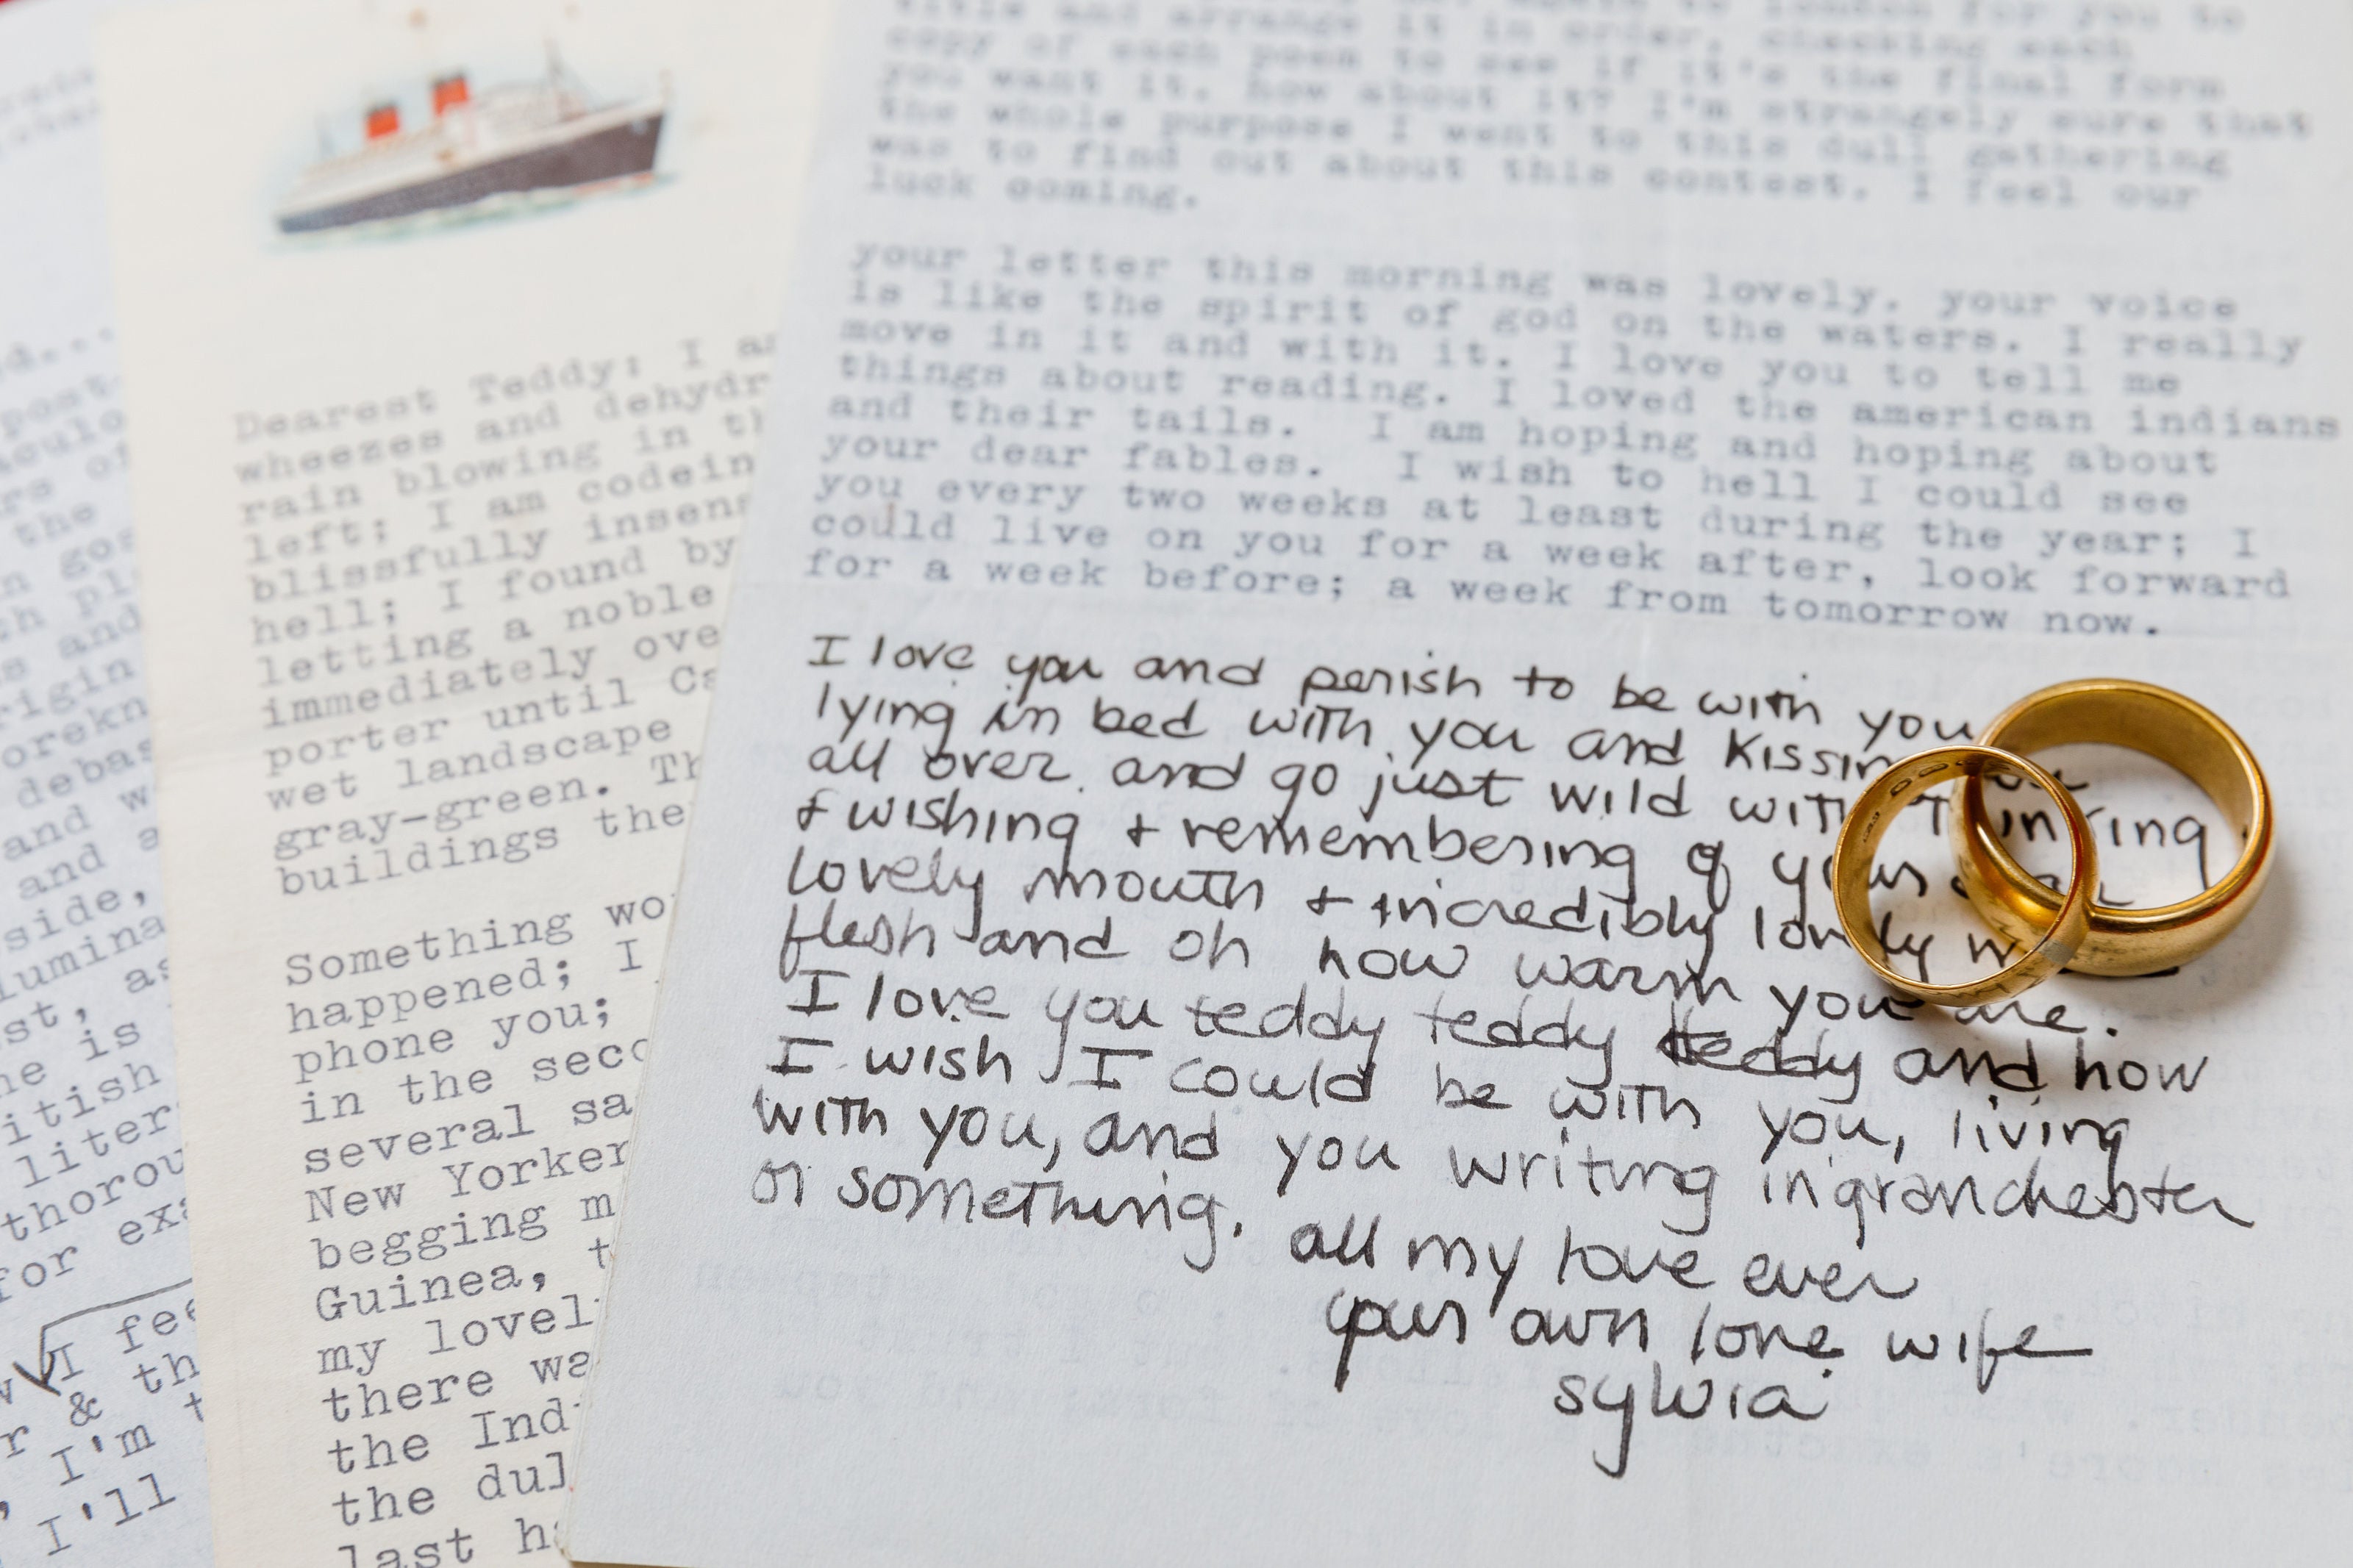 title and arrange it in order, checking each
copy of each poem to see if it's the final form
you want it. how about it? I'm strangely sure that
the whole purpose I went to this dull gathering
was to find out about this contest. I feel our
luck coming.
your letter this morning was lovely. your voice
is like the spirit of god on the waters. I really
move in it and with it. I love you to tell me
things about reading. I loved the american indians
and their tails. I am hoping and hoping about
your dear fables. I wish to hell I could see
you every two weeks at least during the year; I
could live on you for a week after, look forward
for a week before; a week from tomorrow now.
I love you and perish to be with you
lying in bed with you and kissing
all over and go just wild with thinking
+ wishing + remembering of your
lovely mouth + incredibly lovely
flesh and oh how warm you are.
I love you teddy teddy teddy and how
I wish I could be with you, living
with you, and you writing in granchester
or something. all my love ever
your own love wife
sylvia
Dearest Teddy: I
wheezes and dehydr
rain blowing in th
left; I am codein
blissfully insens
hell; I found by
letting a noble
immediately ove
porter until Ca
wet landscape
gray-green. Th
buildings the
Something wo
happened; I
phone you;
in the seco
several sa
New Yorker
begging m
Guinea, t
my lovel
there wa
the Ind
the dul
last ha
post-
the
and
origin
debas
and w
and a
side,
lumina
st, as
ne is
itish
liter
thorou
for exa
I fee
r & th
I'm t
I'll